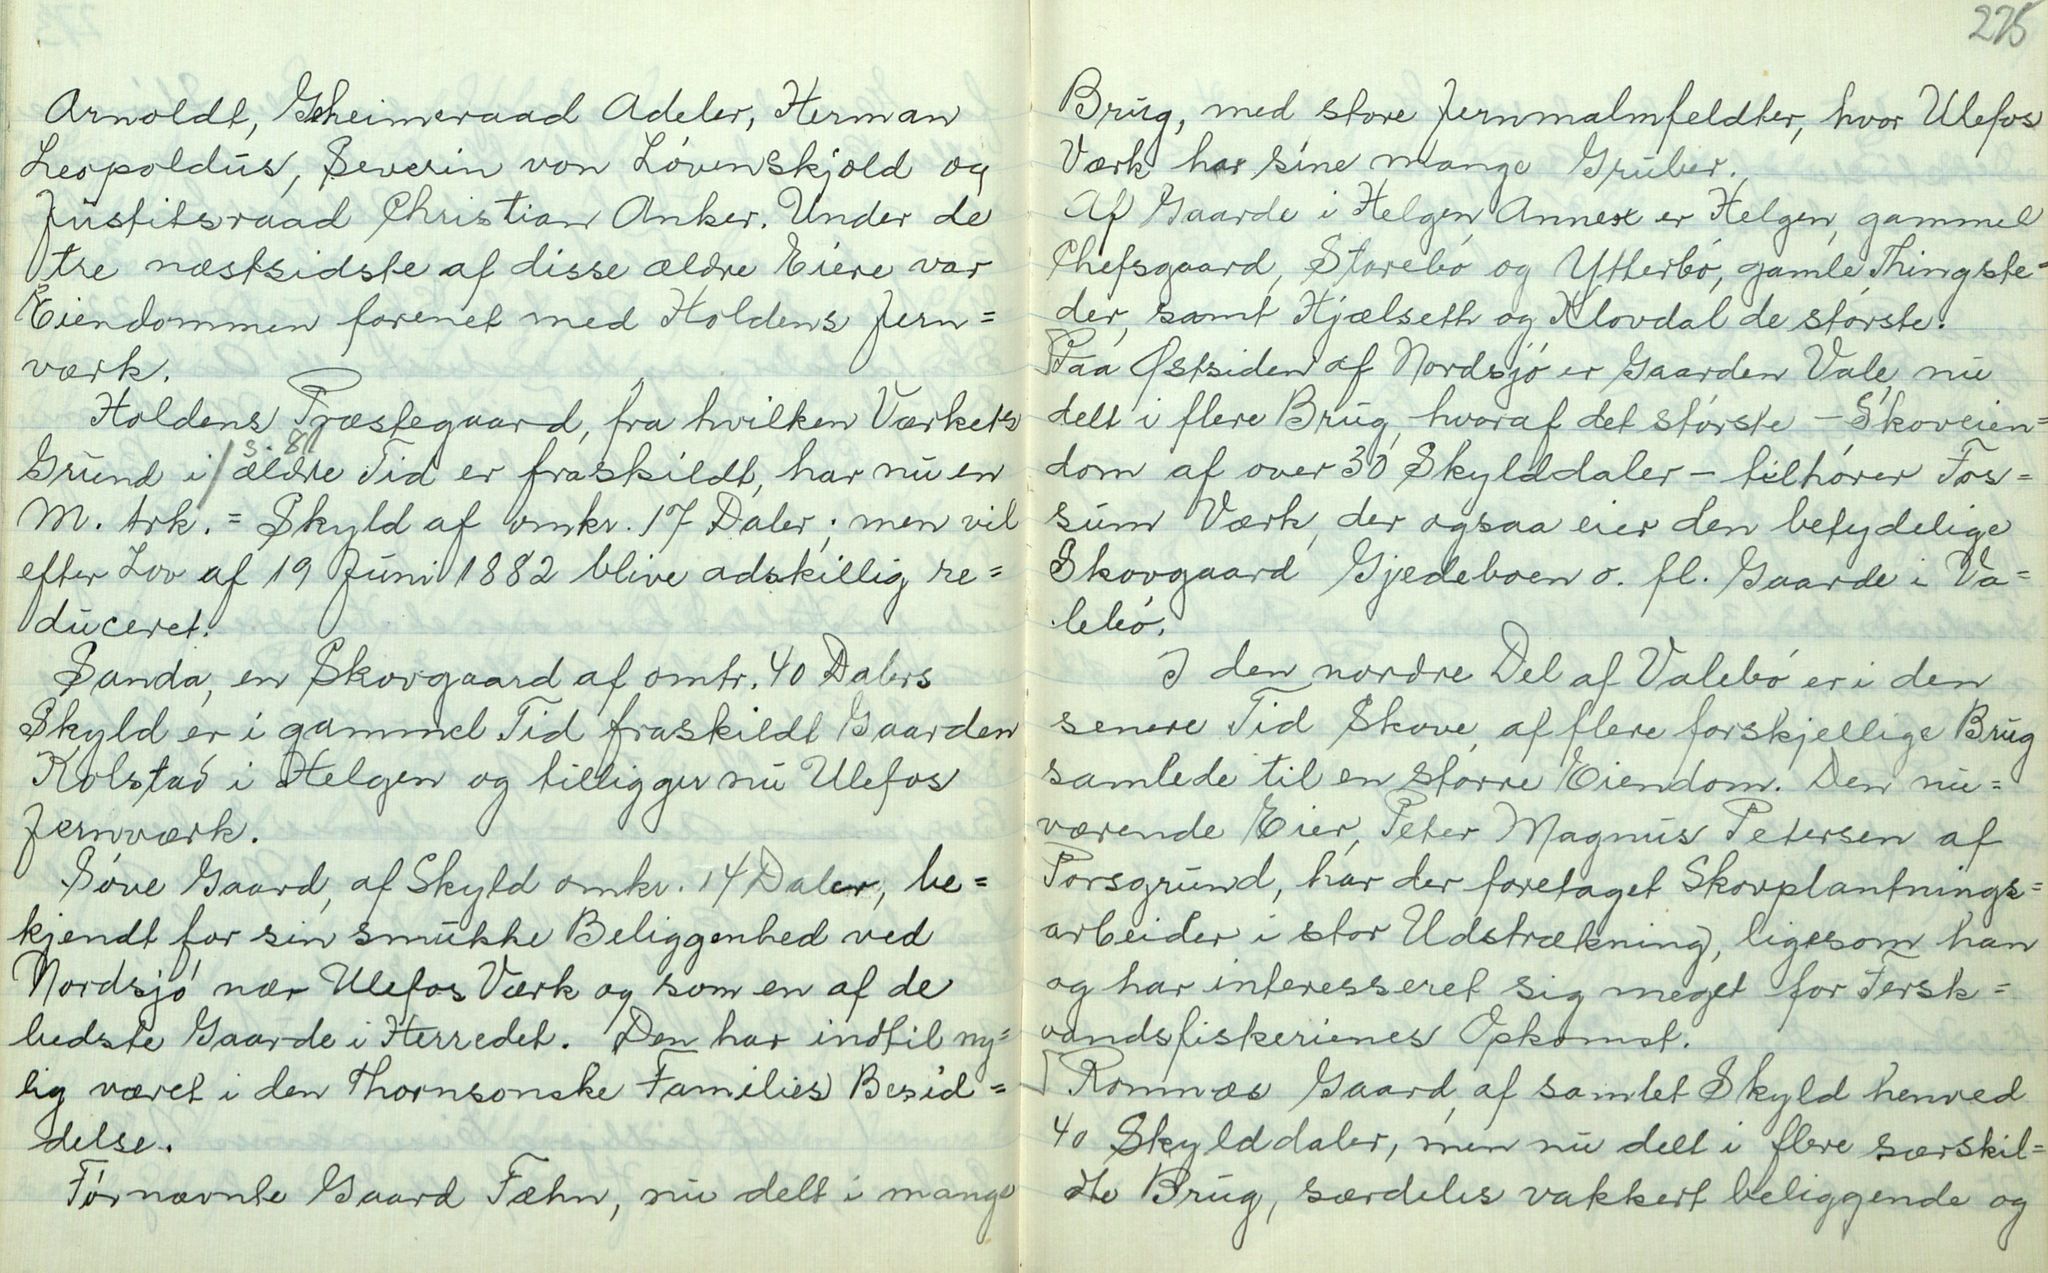 Arnoldt, Geheimeraad Adeler, Herman
Leopoldus, Severin von Lövenskjold og
Justitsraad Christian Anker. Under de
tre næstsidste af disse ældre Eiere var
Eiendommen forenet med Holdens Jern=
værk.
Holdens Præstegaard, fra hvilken Værkets
s. 81
Grund i ældre Tid er fraskildt, har nu en
M. trk. = Skyld af omkr. 17 Daler; men vil
efter Lov af 19 Juni 1882 blive adskillig re=
duceret.
Sanda, en Skovgaard af omtr. 40 Dalers
Skyld er i gammel Tid fraskildt Gaarden
Kolstad i Helgen og tilligger nu Ulefos
Jernværk.
Söve Gaard, af Skyld omkr. 14 Daler, be=
kjendt for sin smukke Beliggenhed ved
Nordsjö nær Ulefos Værk og som en af de
bedste Gaarde i Herredet. Den har indtil ny=
lig været i den Thornsonske Families Besid=
delse.
Förnævnte Gaard Fæhn, nu delt i mange
275
Brug, med store Jernmalmfeldter, hvor Ulefos
Værk har sine mange Gruber.
Af Gaarde i Helgen Annex er Helgen, gammel
Chefsgaard, Storebö og Ytterbö, gamle Thingste=
der, samt Hjælseth og Klovdal de störste.
Paa Östsiden af Nordsjö er Gaarden Vale, nu
delt i flere Brug, hvoraf det störste – Skoveien=
dom af over 30 Skylddaler – tilhörer Fos=
sum Værk, der ogsaa eier den betydelige
Skovgaard Gjedeboen o. fl. Gaarde i Va=
lebö.
I den nordre Del af Valebö er i den
senere Tid Skove af flere forskjellige Brug
samlede til en större Eiendom. Den nu=
værende Eier, Peter Magnus Petersen af
Porsgrund, har der foretaget Skovplantnings=
arbeider i stor Udstrækning, ligesom han
og har interesseret sig meget for Fersk=
vandsfiskerienes Opkomst.
Romnæs Gaard, af samlet Skyld henved
40 Skylddaler, men nu delt i flere særskil=
dte Brug, særdeles vakkert beliggende og